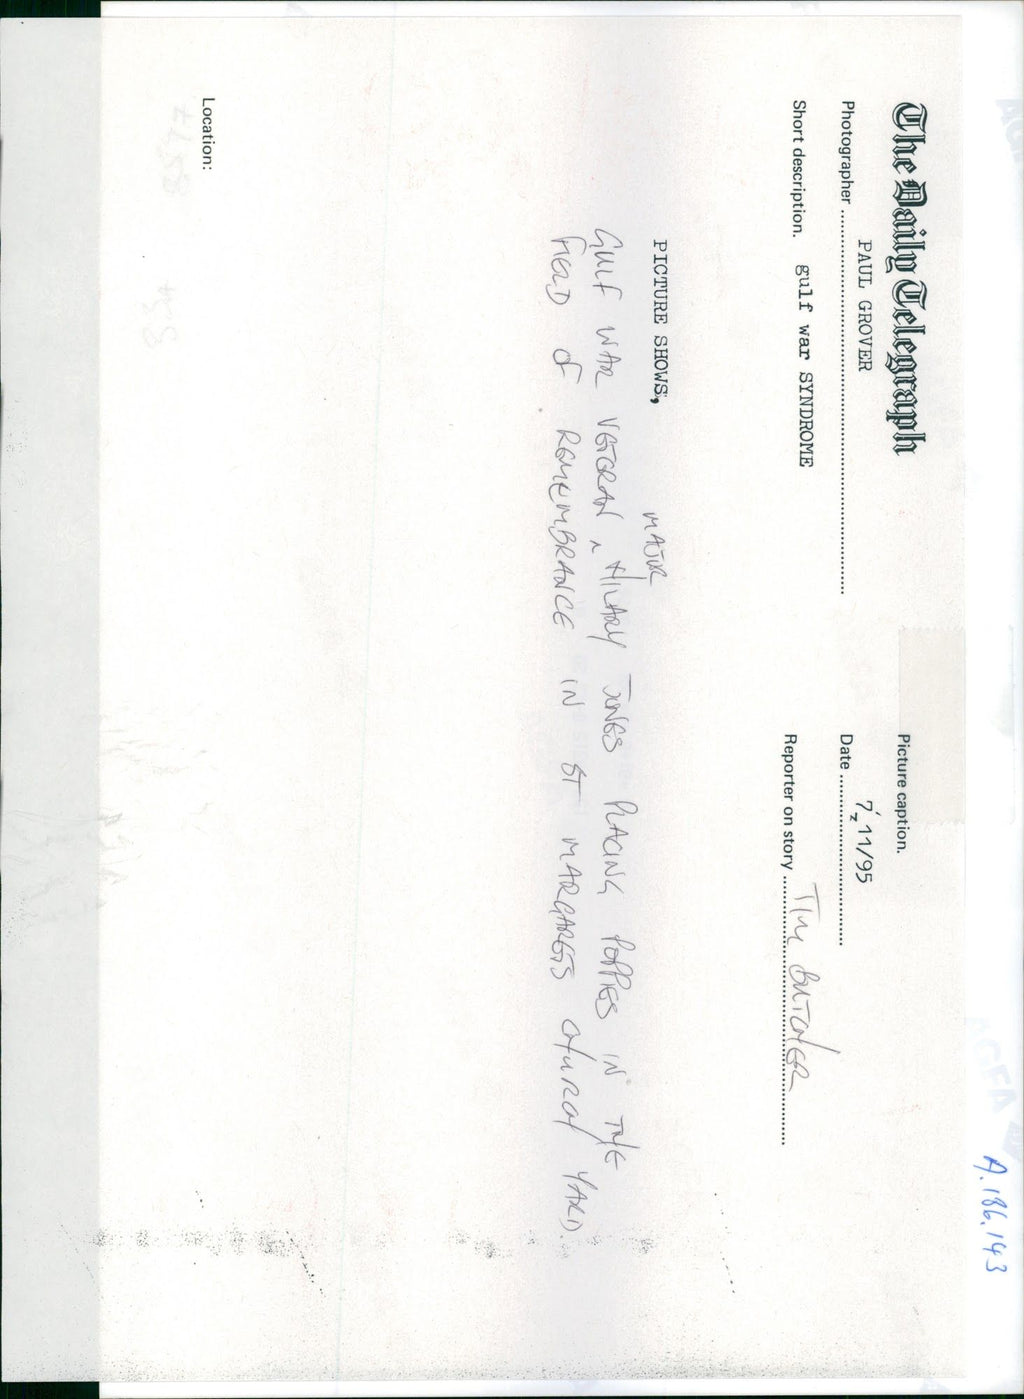 A.186,143
The Daily Telegraph
Picture caption.
Photographer PAUL GROVER
Date 7,11/95
Short description. gulf war SYNDROME
Reporter on story TIM BUTCHER
PICTURE SHOWS,
MAJOR
GULF WAR VETERAN ^ HILARY JONES PLACING POPPIES IN THE
FIELD OF REMEMBRANCE IN ST MARGARETS CHURCH YARD.
Location: